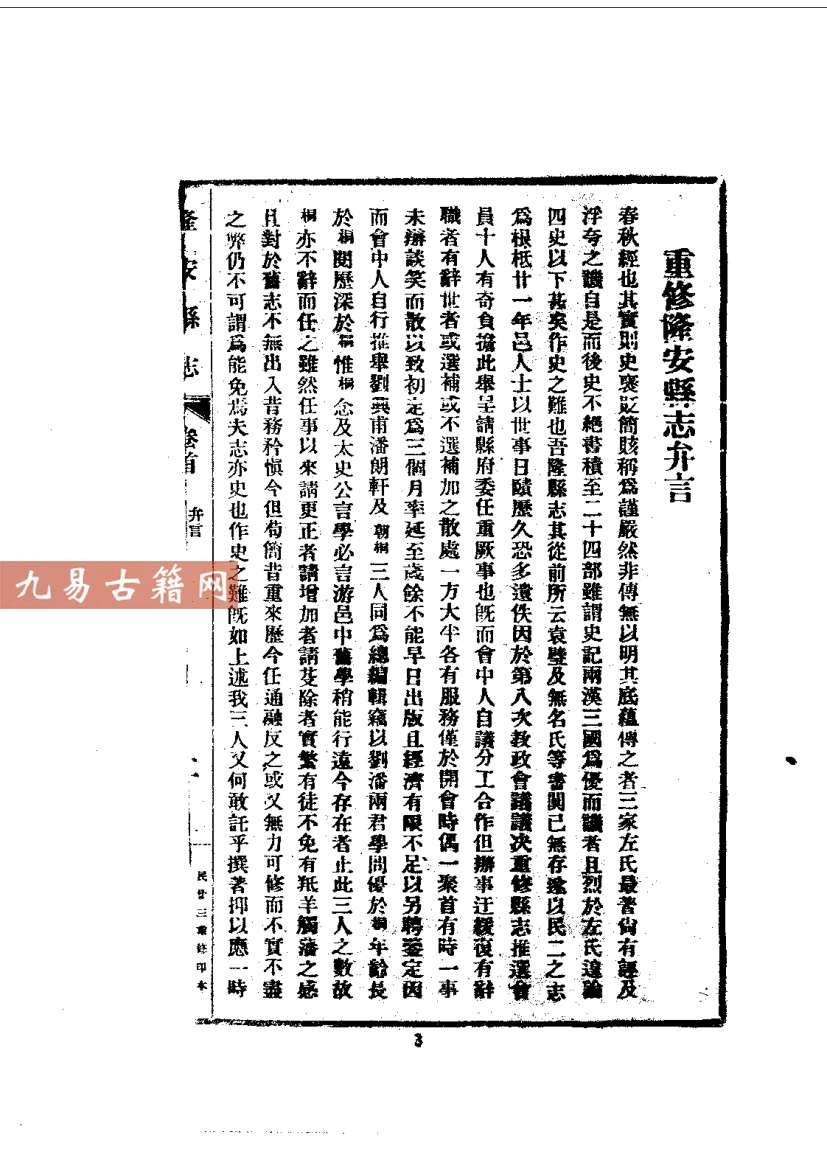 重修隆安縣志弁言
春秋經也其實則史褒貶簡賅稱爲謹嚴然非傳無以明其底蘊傳之者三家左氏最著尙有誣及
浮夸之譏自是而後史不絕書積至二十四部雖謂史記兩漢三國爲優而譏者且烈於左氏遑論
四史以下甚矣作史之難也吾隆縣志其從前所云袁璧及無名氏等書闕已無存遂以民二之志
爲根柢廿一年邑人士以世事日賾歷久恐多遺佚因於第八次敎政會議議決重修縣志推選會
員十人有奇負擔此舉呈請縣府委任重厥事也旣而會中人自議分工合作但辦事迂緩復有辭
職者有辭世者或選補或不選補加之散處一方大半各有服務僅於開會時偶一聚首有時一事
未辦談笑而散以致初定爲三個月率延至歲餘不能早日出版且經濟有限不足以另聘鉴定因
而會中人自行推舉劉 甫潘朗軒及朝桐三人同爲總編輯竊以劉潘兩君學問優於桐年齡長
於桐閱歷深於桐惟桐念及太史公言學必言游邑中舊學稍能行遠今存在者止此三人之數故
桐亦不辭而任之雖然任事以來請更正者請增加者請芟除者實繁有徒不免有羝羊觸藩之感
且對於舊志不無出入昔務矜愼今但苟簡昔重來歷今任通融反之或又無力可修而不實不盡
之弊仍不可謂爲能免焉夫志亦史也作史之難旣如上述我三人又何敢託乎撰著抑以應一時
隆安縣志
卷首
弁言
一
民廿三重修印本
九易古籍网
3